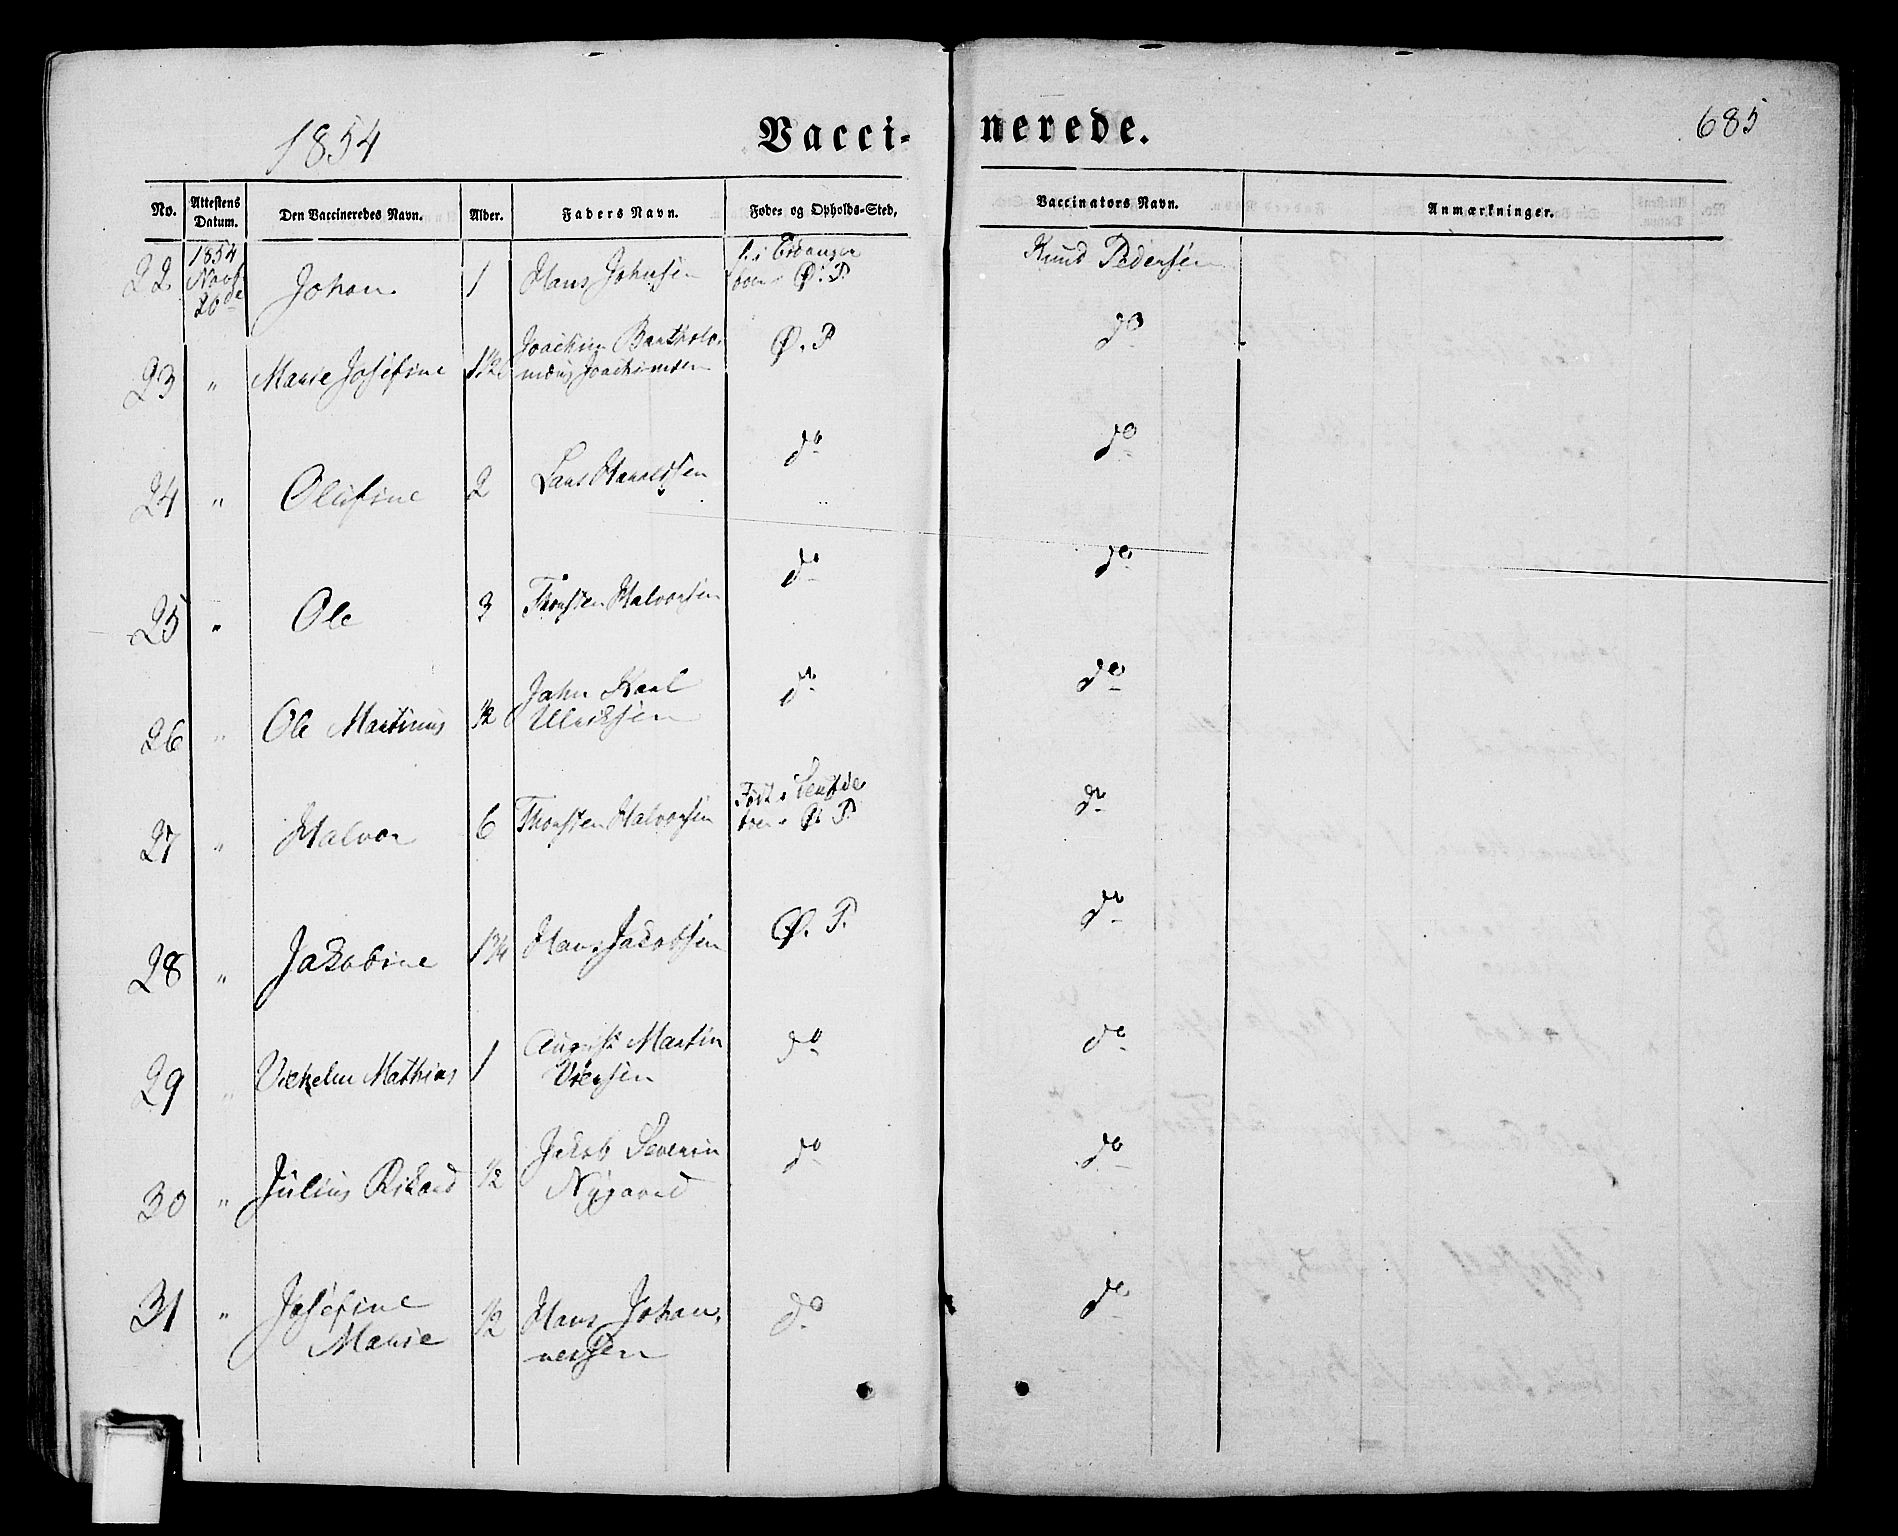 1854
Vacci-
nerede.
685
No.
Attestens Datum.
Den Vaccineredes Navn.
Alder.
Faders Navn.
Føde- og Opholds-Sted,
Vaccinators Navn.
Anmærkninger.
22 1854 Novbr 20de Johan 1 Hans Johnsen f. i Eidanger boer i Ø. P. Knud Pedersen
23 " Marie Josefine 1 1/2 Joachim Bartholo-
mæus Joachimsen Ø. P do
24 " Olufine 2 Lars Haraldsen do do
25 " Ole 3 Thorsten Halvorsen do do
26 " Ole Martinus 1/2 John Karl
Ulriksen do do
27 " Halvor 6 Thorsten Halvorsen Født i
boer i Ø. P. do
28 " Jakobine 1 3/4 Hans Jakobsen Ø. P. do
29 " Vilhelm Mathias 1 August Martin
do do
30 " Julius Rikard 1/2 Jakob Severin
Nygaard do do
31 " Josefine
Marie 1/2 Hans Johan-
nessen do do